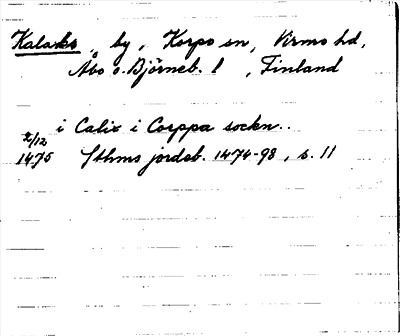 Kalaks, by, Korpo sn, Virmo hd,
Åbo o. Björneb. l, Finland
i Calix i Corppa sockn..
2/12
1475 Sthms jordeb. 1474-98, s. 11